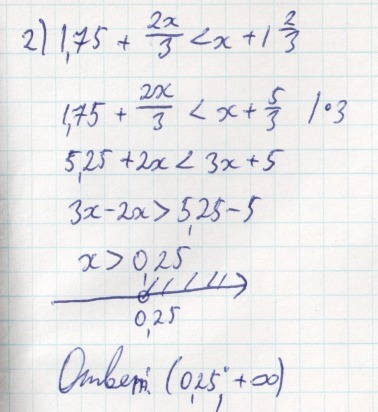 2) 1,75 + 2x/3 < x + 1 2/3
1,75 + 2x/3 < x + 5/3 /•3
5,25 + 2x < 3x + 5
3x - 2x > 5,25 - 5
x > 0,25
0,25
Ответ: (0,25; +∞)